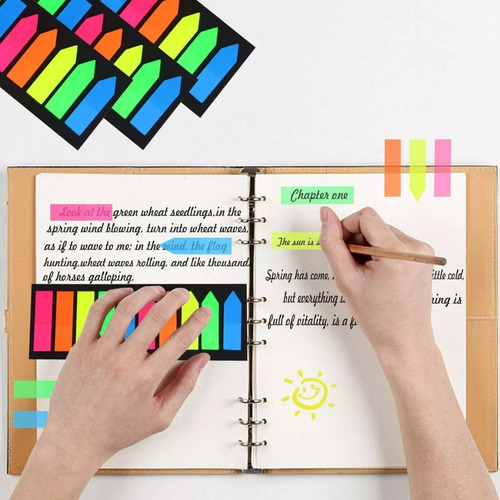 Look at the green wheat seedlings,in the
spring wind blowing, turn into wheat waves,
as if to wave to me; in the wind, the flag
hunting,wheat waves rolling, and like thousand
of horses galloping.
Chapter one
The sun is s
Spring has come, little cold,
but everything ing is
full of vitality, is a f